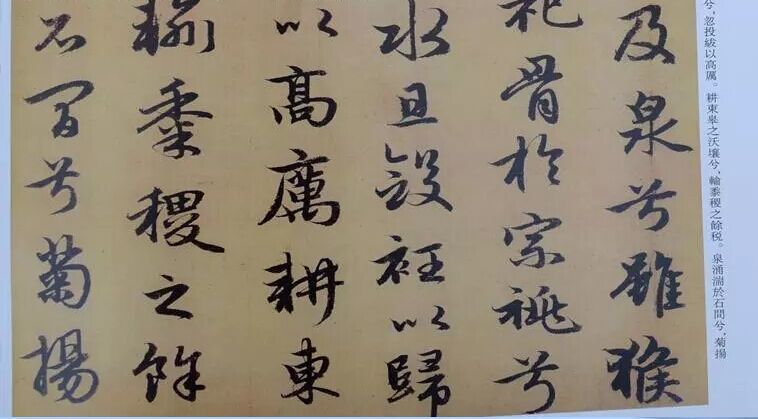 兮，忽投紱以高厲。耕東皋之沃壤兮，輸黍稷之餘税。泉涌湍於石間兮，菊揚
及泉兮雖猴
祀骨於宗祧兮
水且斂衽以歸
以高厲耕東
輸黍稷之餘
石間兮菊揚